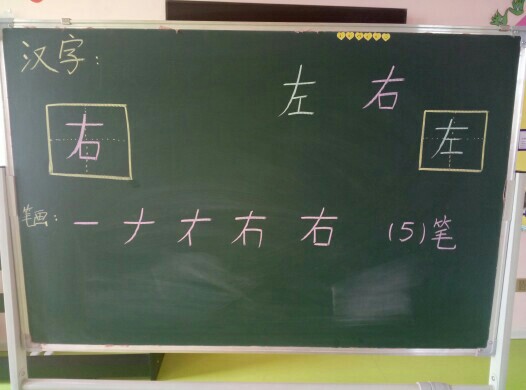 汉字：
左 右
右 左
笔画：一 ナ 才 冇 右 (5)笔